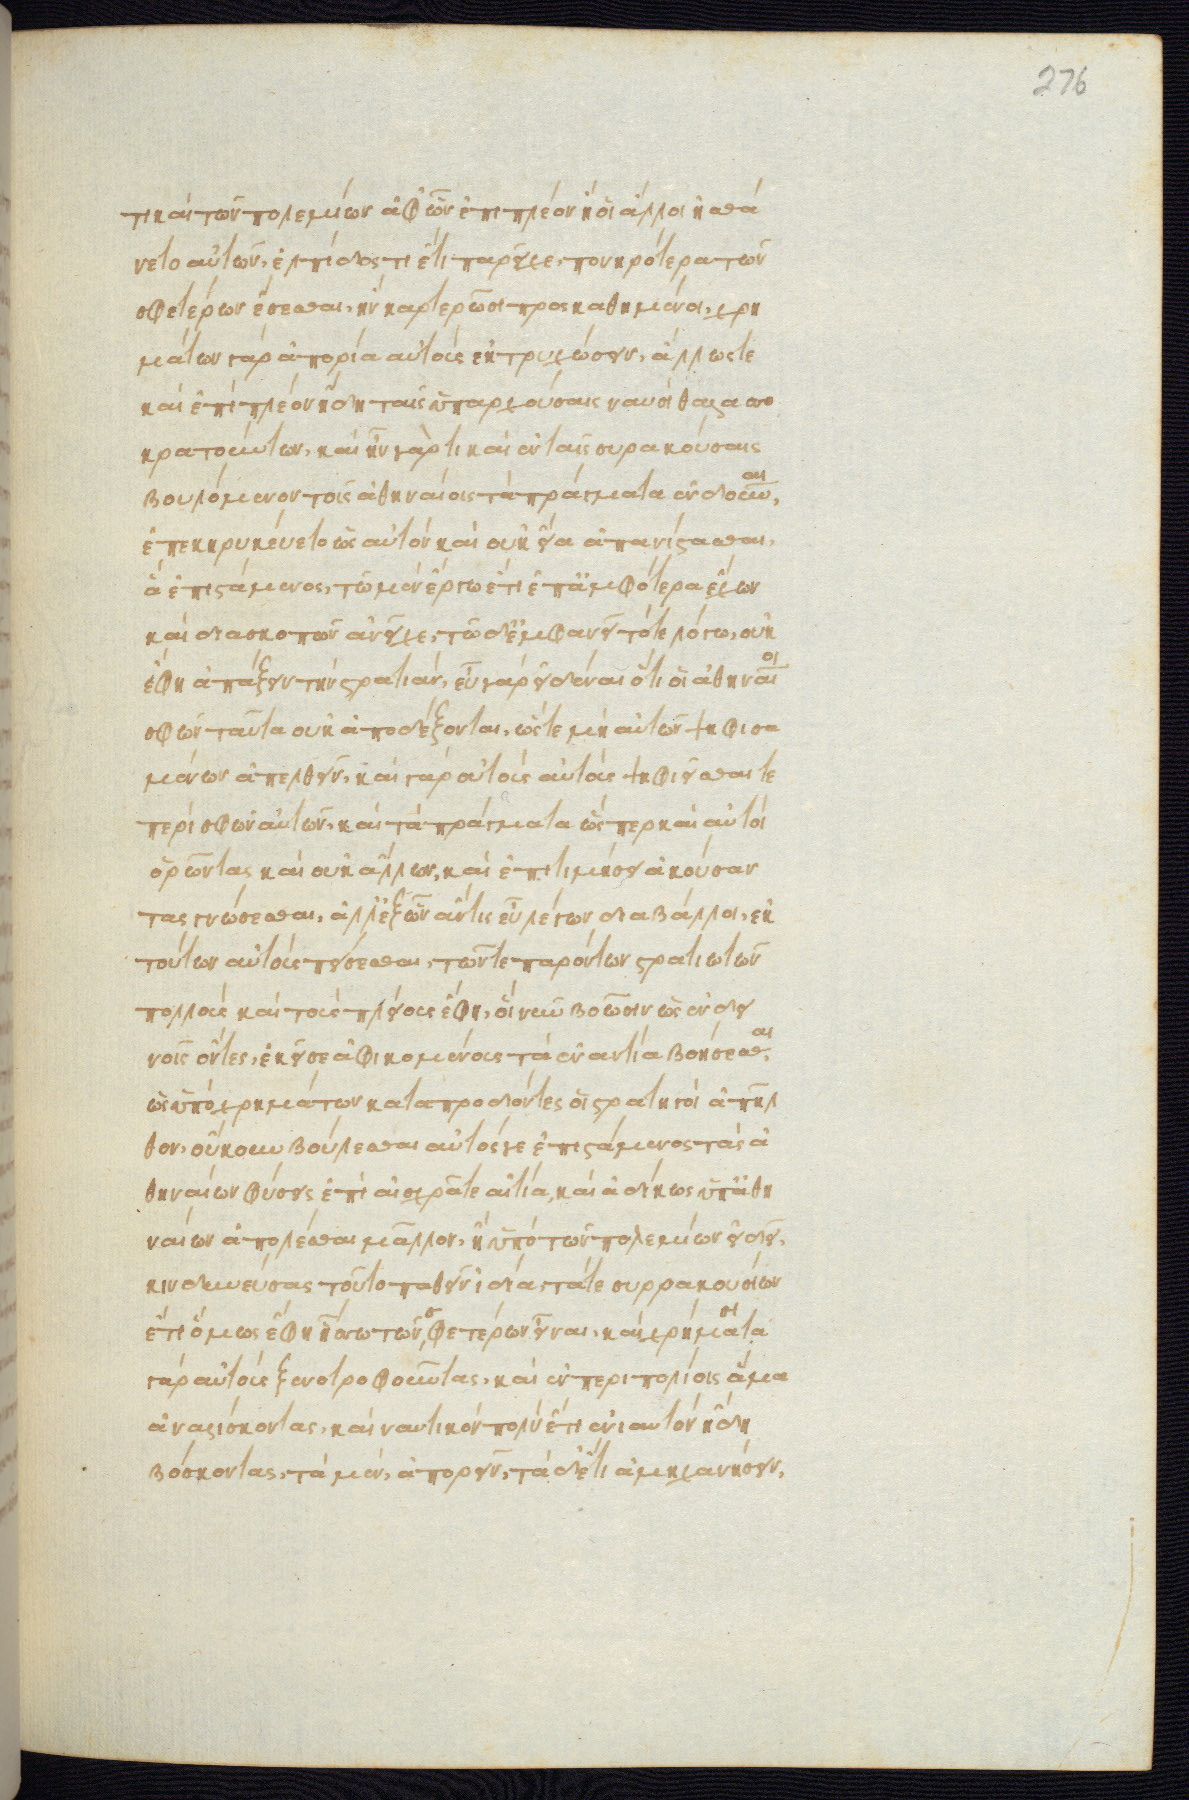 276
τι καὶ τῶν πολεμίων ἀφ᾽ ὧν ἐπιπλέον ἢ οἱ ἄλλοι ᾐσθά
νετο αὐτῶν, ἐλπίδος τι ἔτι παρεῖχε, πονηρότερα τῶν
σφετέρων ἔσεσθαι, ἢν καρτερῶσι προσκαθημένοι, χρη
μάτων γὰρ ἀπορία αὐτοὺς ἐκτρυχώσειν, ἄλλωστε
καὶ ἐπιπλέον ἤδη ταῖς ὑπαρχούσαις ναυσὶ θαλασσο
κρατούντων, καὶ ἦν γάρ τι καὶ ἐν ταῖς συρακούσαις
βουλόμενον τοῖς ἀθηναίοις τὰ πράγματα ἐνδοῦναι,
ἐπεκηρυκεύετο ὡς αὐτὸν καὶ οὐκ εἴα ἀπανίστασθαι,
ἃ ἐπιστάμενος, τῷ μὲν ἔργῳ ἔτι ἐπ᾽ ἀμφότερα ἔχων
καὶ διασκοπῶν ἀνεῖχε, τῷ δ᾽ ἐμφανεῖ τότε λόγῳ, οὐκ
ἔφη ἀπάξειν τὴν στρατιάν, εὖ γὰρ εἰδέναι ὅτι οἱ ἀθηναῖοι
σφῶν ταῦτα οὐκ ἀποδέξονται, ὥστε μὴ αὐτῶν ψηφισα
μένων ἀπελθεῖν, καὶ γὰρ οὐ τοὺς αὐτοὺς ψηφιεῖσθαι τε
περὶ σφῶν αὐτῶν, καὶ τὰ πράγματα ὥσπερ καὶ αὐτοὶ
ὁρῶντας καὶ οὐκ ἄλλων, καὶ ἐπιτιμήσει ἀκούσαν
τας γνώσεσθαι, ἀλλ᾽ ἐξ ὧν ἄν τις εὖ λέγων διαβάλλοι, ἐκ
τούτων αὐτοὺς πείσεσθαι, τῶν τε παρόντων στρατιωτῶν
πολλοὺς καὶ τοὺς πλείους ἔφη, οἳ νῦν βοῶσιν ὡς ἐν δει
νοῖς ὄντες, ἐκεῖσε ἀφικομένους τὰ ἐναντία βοήσεσθαι,
ὡς ὑπὸ χρημάτων καταπροδόντες οἱ στρατηγοὶ ἀπῆλ
θον, οὔκουν βούλεσθαι αὐτός γε ἐπιστάμενος τὰς ἀ
θηναίων φύσεις ἐπὶ αἰσχρᾶ τε αἰτίᾳ, καὶ ἀδίκως ὑπ᾽ ἀθη
ναίων ἀπολέσθαι μᾶλλον, ἢ ὑπὸ τῶν πολεμίων εἰ δεῖ,
κινδυνεύσας τοῦτο παθεῖν ἰδίᾳ τά τε συρρακουσίων
ἔτι ὅμως ἔφη ἥσσω τῶν σφετέρων εἶναι, καὶ χρήμασι
γὰρ αὐτοὺς ξενοτροφοῦντας, καὶ ἐν περιπολίοις ἅμα
ἀναλίσκοντας, καὶ ναυτικὸν πολὺ ἔτι ἐνιαυτὸν ἤδη
βόσκοντας, τὰ μὲν, ἀπορεῖν, τὰ δ᾽ ἔτι ἀμηχανήσειν,